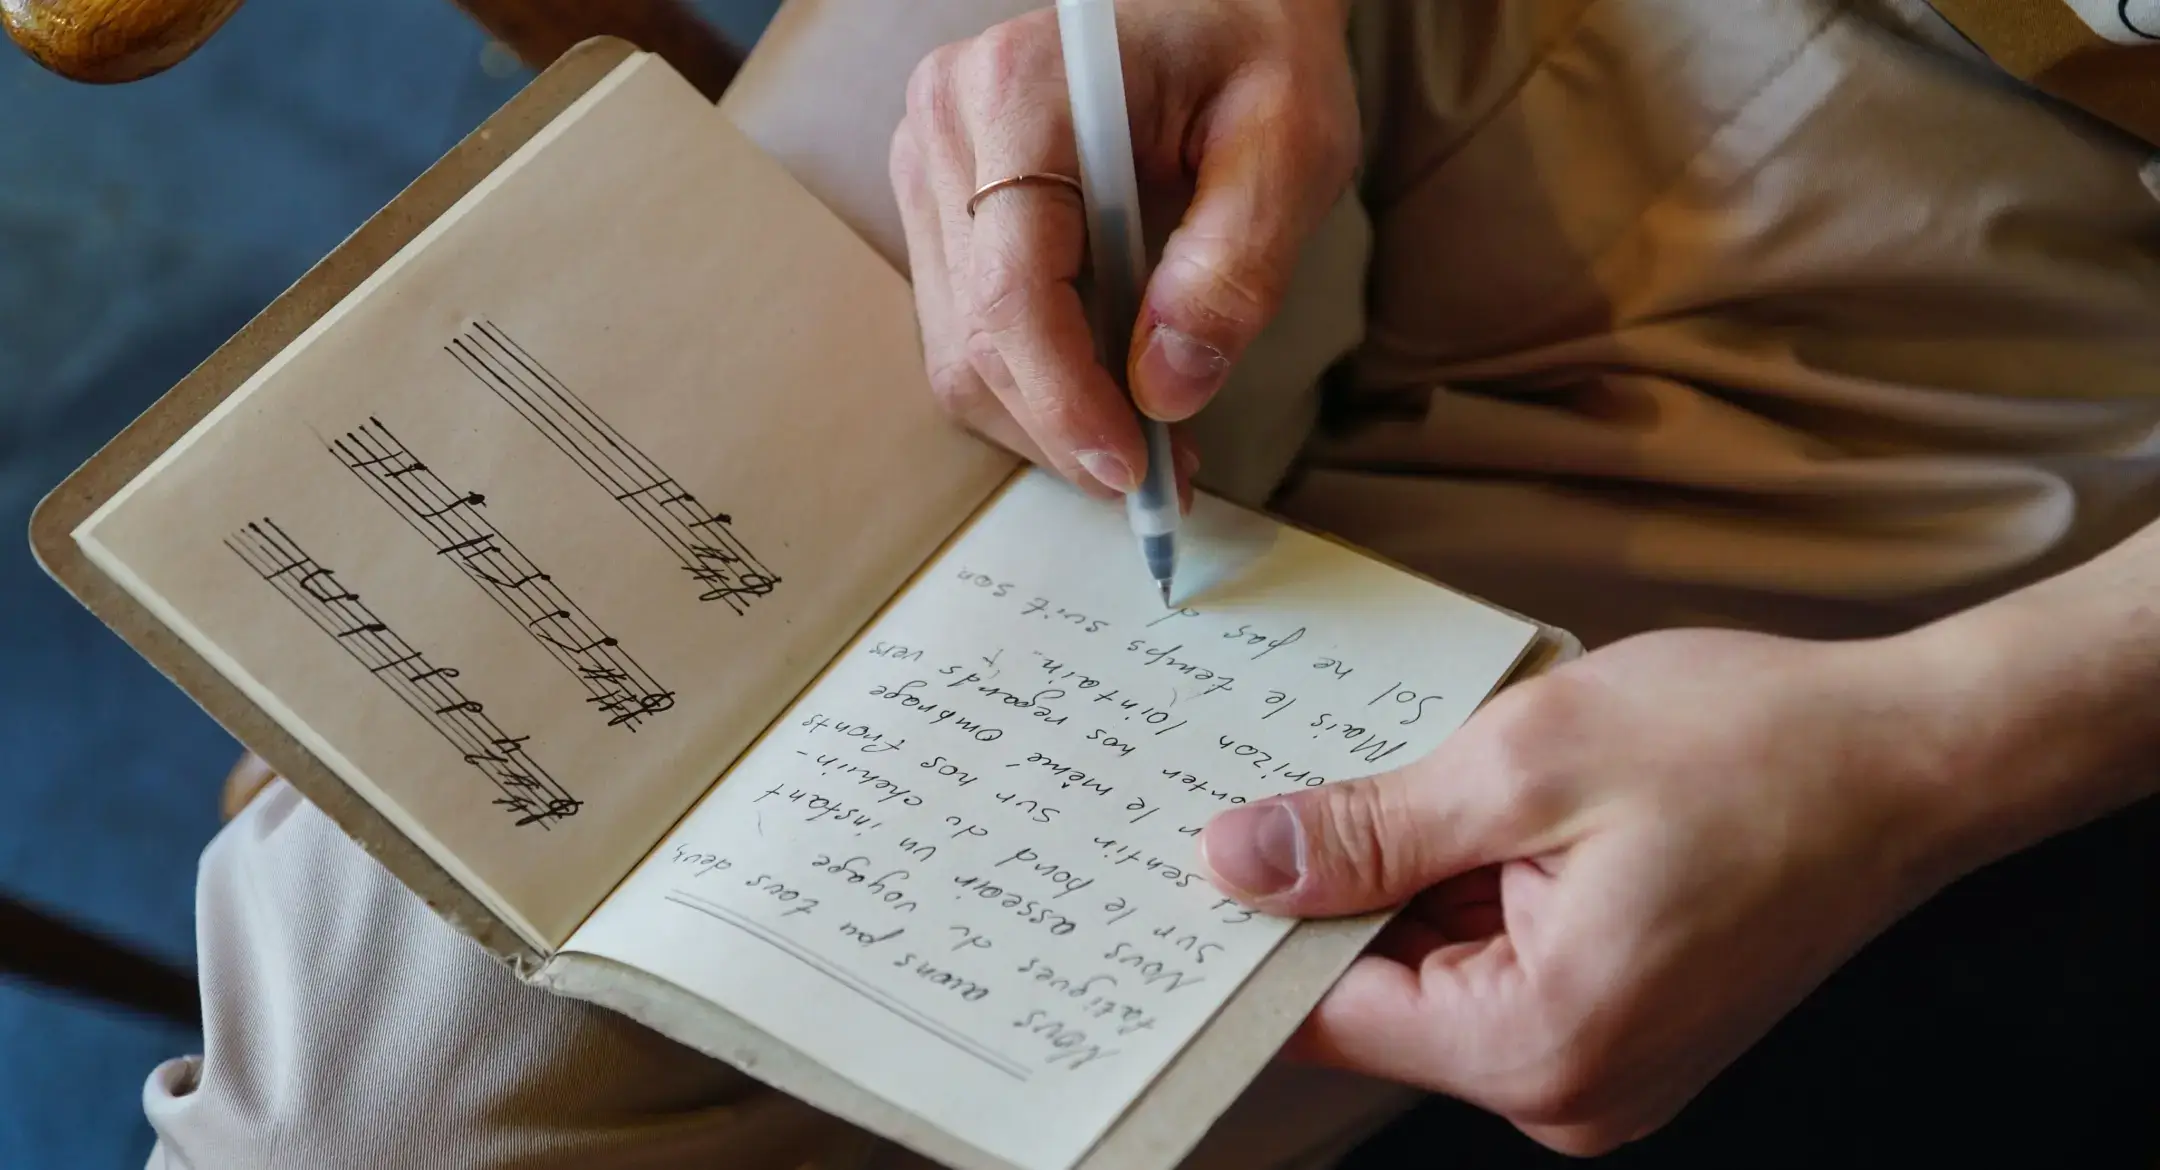 Nous avions pu tous deux,
fatigués du voyage
Nous asseoir un instant
sur le bord du chemin-
Et sentir sur nos fronts
le même ombrage
nos regards vers
horizon lointain.
Mais le temps suit son
Sol ne pas d